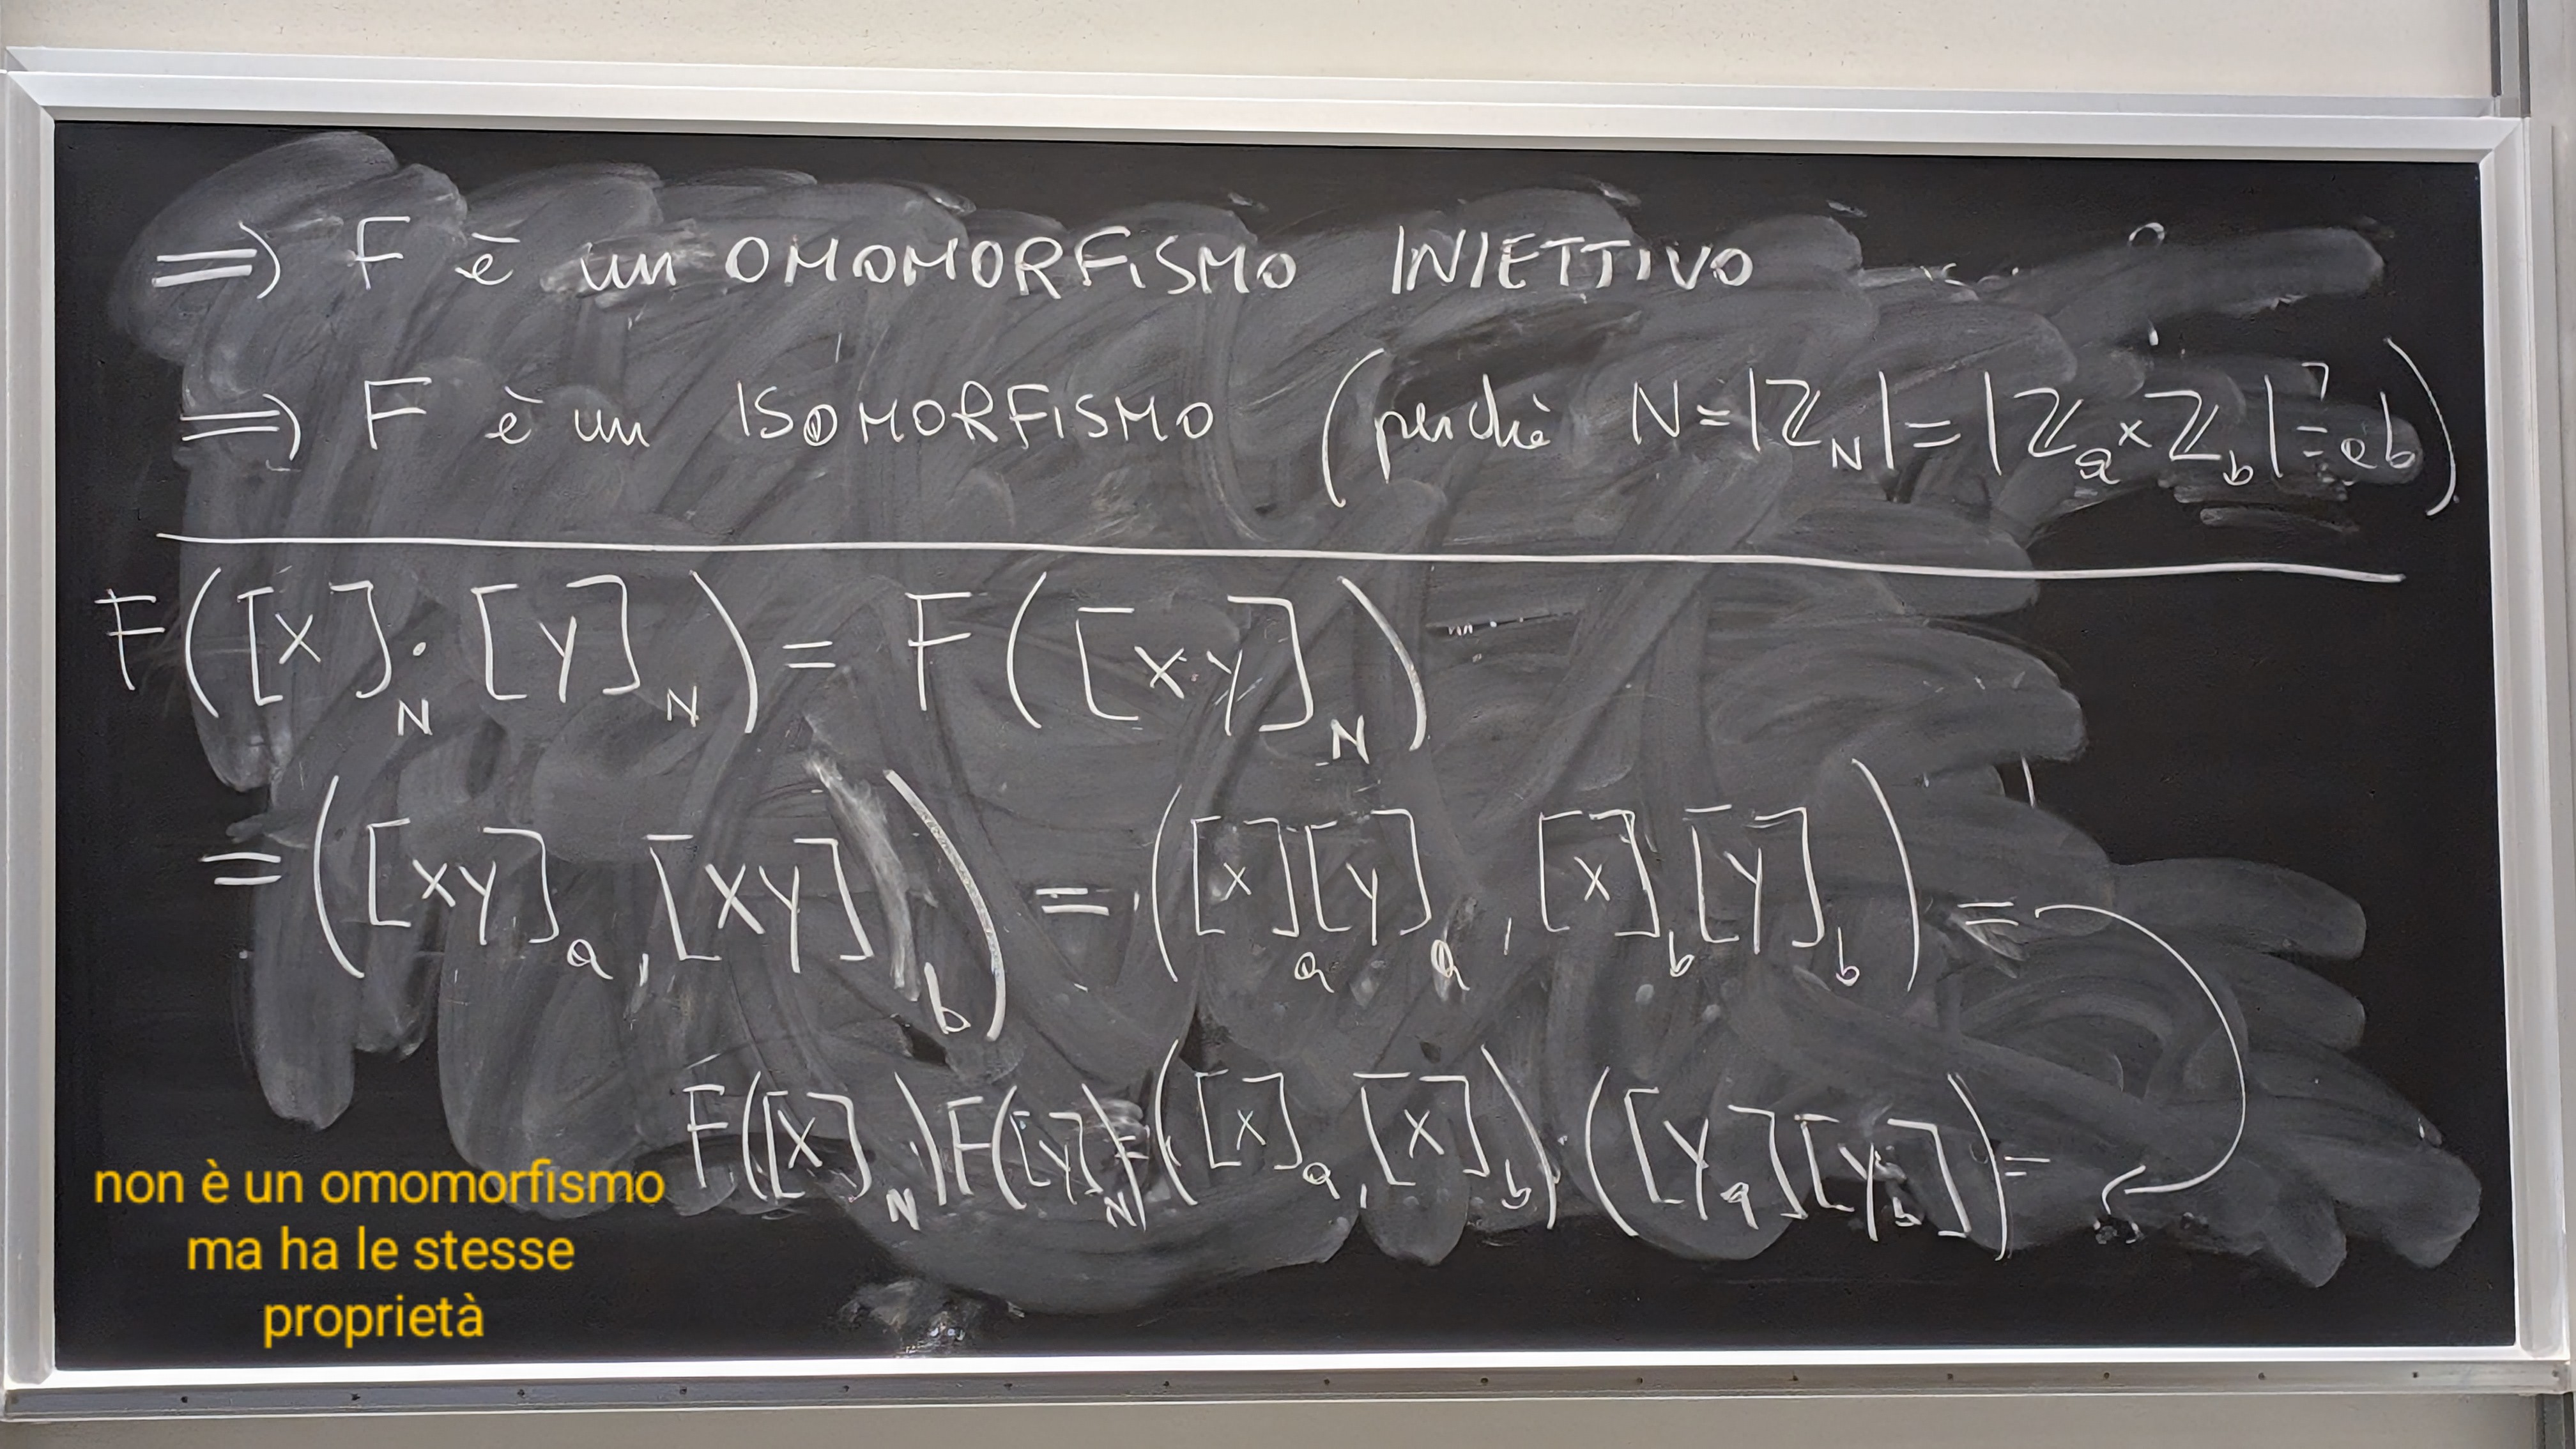 =) F è un OMOMORFISMO INIETTIVO
=) F è un ISOMORFISMO (perchè N=|ℤ_N|=|ℤ_a×ℤ_b|=ab)
F([x]_N·[y]_N)=F([xy]_N)
=([xy]_a,[xy]_b)=([x]_a[y]_a,[x]_b[y]_b)=
F([x]_N)F([y]_N)=([x]_a,[x]_b)·([y_a][y_b])=
non è un omomorfismo
ma ha le stesse
proprietà